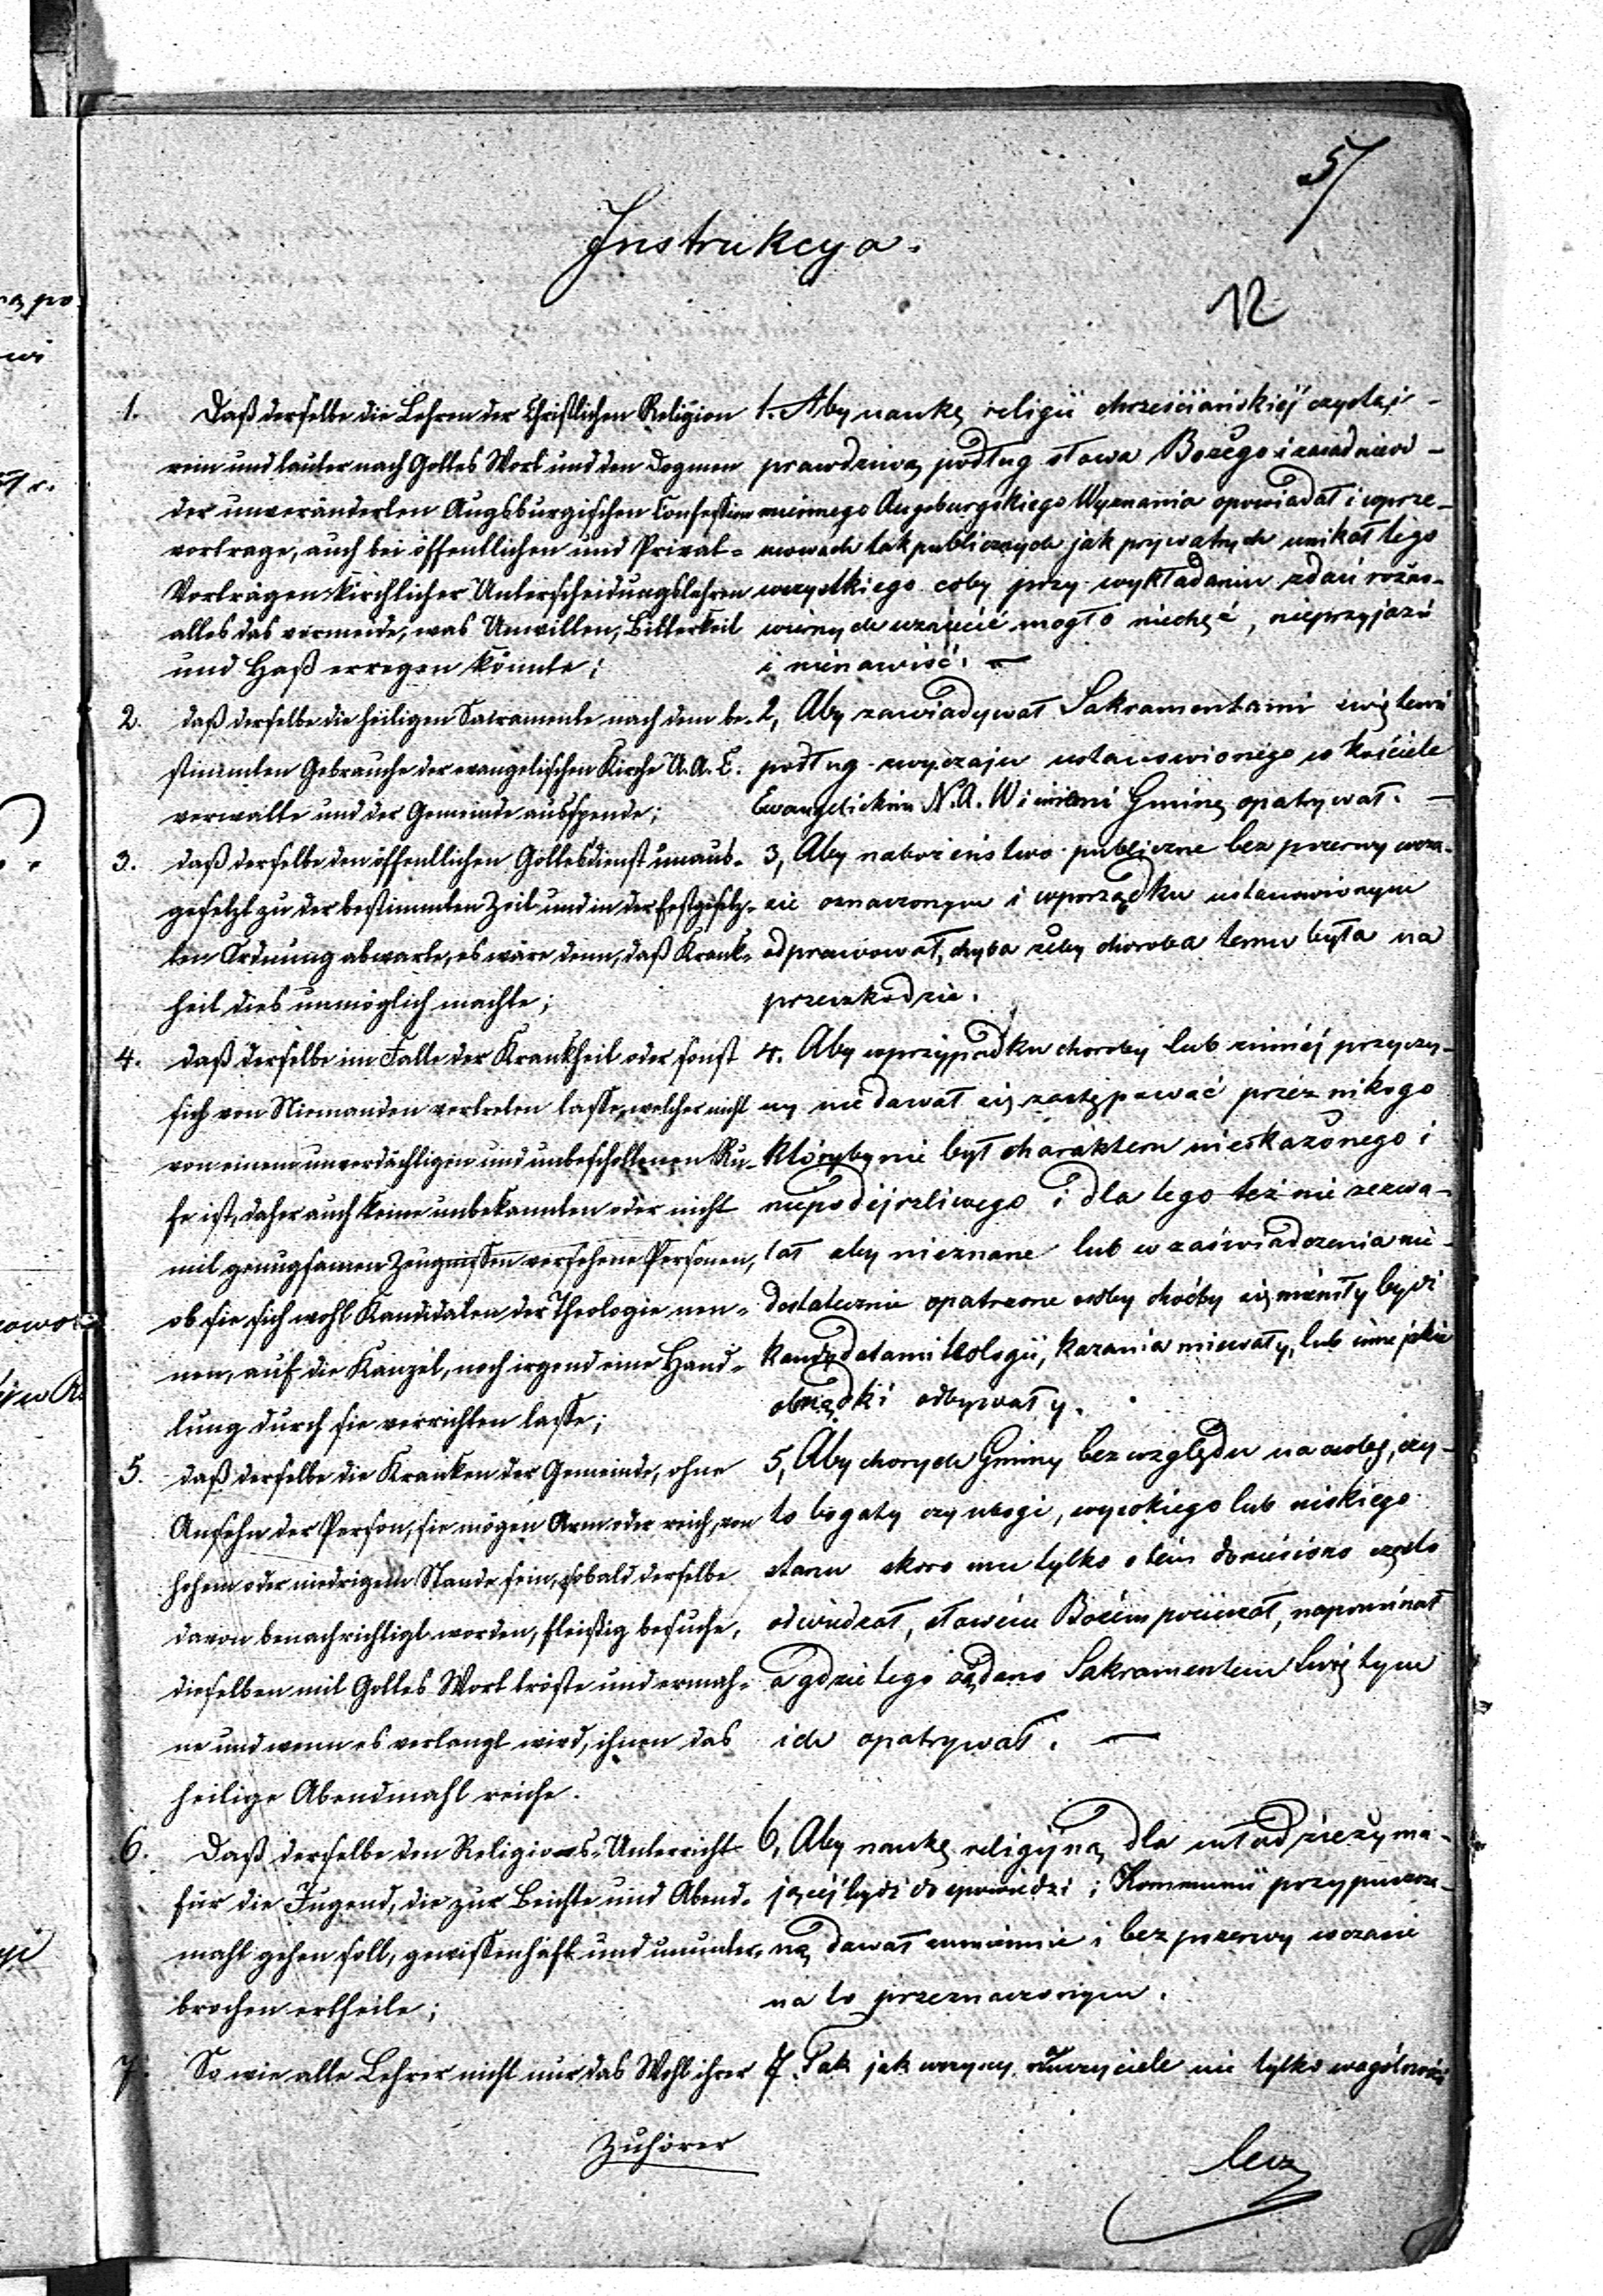 5/
Instrukcya.
12
1. Daß derselbe die Lehren der Christlichen Religion
rein und lauter nach Gottes Wort und den Dogmen
der unveränderten Augsburgischen Confession
vortrage, auch bei öffentlichen und Privat-
Vorträgen kirchlicher Unterscheidungslehren
alles das vermeide, was Unwillen, Bitterkeit
und Haß erregen könnte;
2. daß derselbe die heiligen Sacramente nach dem be-
stimmten Gebrauche der evangelischen Kirche U. A. C.
verwalte und der Gemeinde ausspende;
3. daß derselbe den öffentlichen Gottesdienst unaus-
gesetzt zu der bestimmten Zeit und in der festgesetz-
ten Ordnung abwarte, es wäre denn, daß Krank-
heit dies unmöglich machte;
4. daß derselbe im Falle der Krankheit oder sonst
sich von Niemanden vertreten lasse, welcher nicht
von einem unverdächtigen und unbescholtenen Ru-
fe ist, daher auch keine unbekannten oder nicht
mit genugsamen Zeugnissen versehene Personen,
ob sie sich wohl Kandidaten der Theologie nen-
nen, auf die Kanzel, noch irgend eine Hand-
lung durch sie verrichten lasse;
5. daß derselbe die Kranken der Gemeinde, ohne
Ansehn der Person, sie mögen Arm oder reich, von
hohem oder niedrigem Stande sein, sobald derselbe
davon benachrichtigt worden, fleißig besuche,
dieselben mit Gottes Wort tröste und ermah-
ne und wenn es verlangt wird, ihnen das
heilige Abendmahl reiche.
6. Daß derselbe den Religions-Unterricht
für die Jugend, die zur Beichte und Abend-
mahl gehen soll, gewissenhaft und ununter-
brochen ertheile;
7. So wie alle Lehrer nicht nur das Wohl ihrer
Zuhörer
1. Aby naukę religii chrześciańskiéj czystą i
prawdziwą podług słowa Bożego i zasad nieod-
miennego Augsburgskiego Wyznania opowiadał i w prze-
mowach tak publicznych jak prywatnych unikał tego
wszystkiego coby przy wykładaniu zdań różno-
wiernych wzniécić mogło niechęć, nieprzyjaźń
i nienawiść. —
2, Aby zawiadywał Sakramentami świętemi
podług zwyczaju ustanowionego w kościele
Ewangelickim N. A. W i niemi Gminę opatrywał. —
3, Aby nabożeństwo publiczne bez przerwy w cza-
sie oznaczonym i w porządku ustanowionym
odprawował, chyba żeby choroba temu była na
przeszkodzie.
4. Aby w przypadku choroby lub innéj przyczy-
ny nie dawał się zastępować przez nikogo
któryby nie był charakteru nieskażonego i
niepodejrzliwego i dla tego też nie zezwa-
lał aby nieznane lub w zaświadczenia nie-
dostatecznie opatrzone osoby choćby się mieniły bydź
kandydatami teologii, kazania miewały, lub inne jakie
obrządki odbywały.
5, Aby chorych Gminy bez względu na osobę, czy
to bogaty czy ubogi, wysokiego lub niskiego
stanu skoro mu tylko o tém doniesiono często
odwiedzał, słowem Bożém pocieszał, napominał
a gdzie tego żądano Sakramentem Świętym
ich opatrywał. —
6, Aby naukę religijną dla młodzieży ma-
jącéj bydź do spowiedzi i Kommunii przypuszczo-
ną dawał sumiennie i bez przerwy w czasie
na to przeznaczonym.
7. Tak jak wszyscy nauczyciele nie tylko w ogólności
lecz